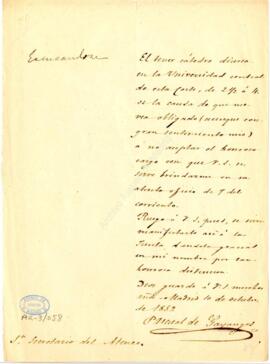 Excusandose
El tener cátedra diaria
en la Universidad central
de esta Corte, de 2½ á 4
es la causa de que me
vea obligado (aunque con
gran sentimiento mio)
á no aceptar el honroso
cargo con que V. S. se
sirve brindarme en su
atento oficio de 7 del
corriente.
Ruego á V. S. pues, se sirva
manifestarlo así á la
Junta dandole gracias
en mi nombre por tan
honrosa distincion.
Dios guarde á V. S. muchos
años Madrid 10 de octubre
de 1852
Pascual de Gayangos
Sr. Secretario del Ateneo.